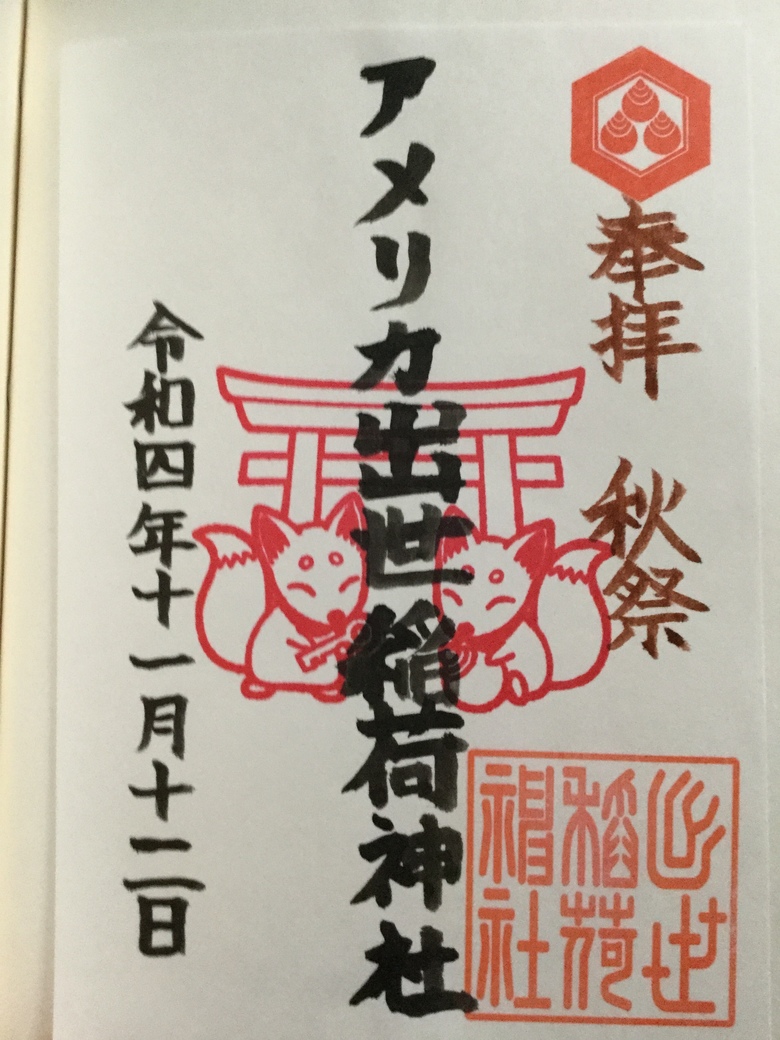 奉拝　秋祭
アメリカ出世稲荷神社
令和四年十一月十二日
出世
稲荷
神社